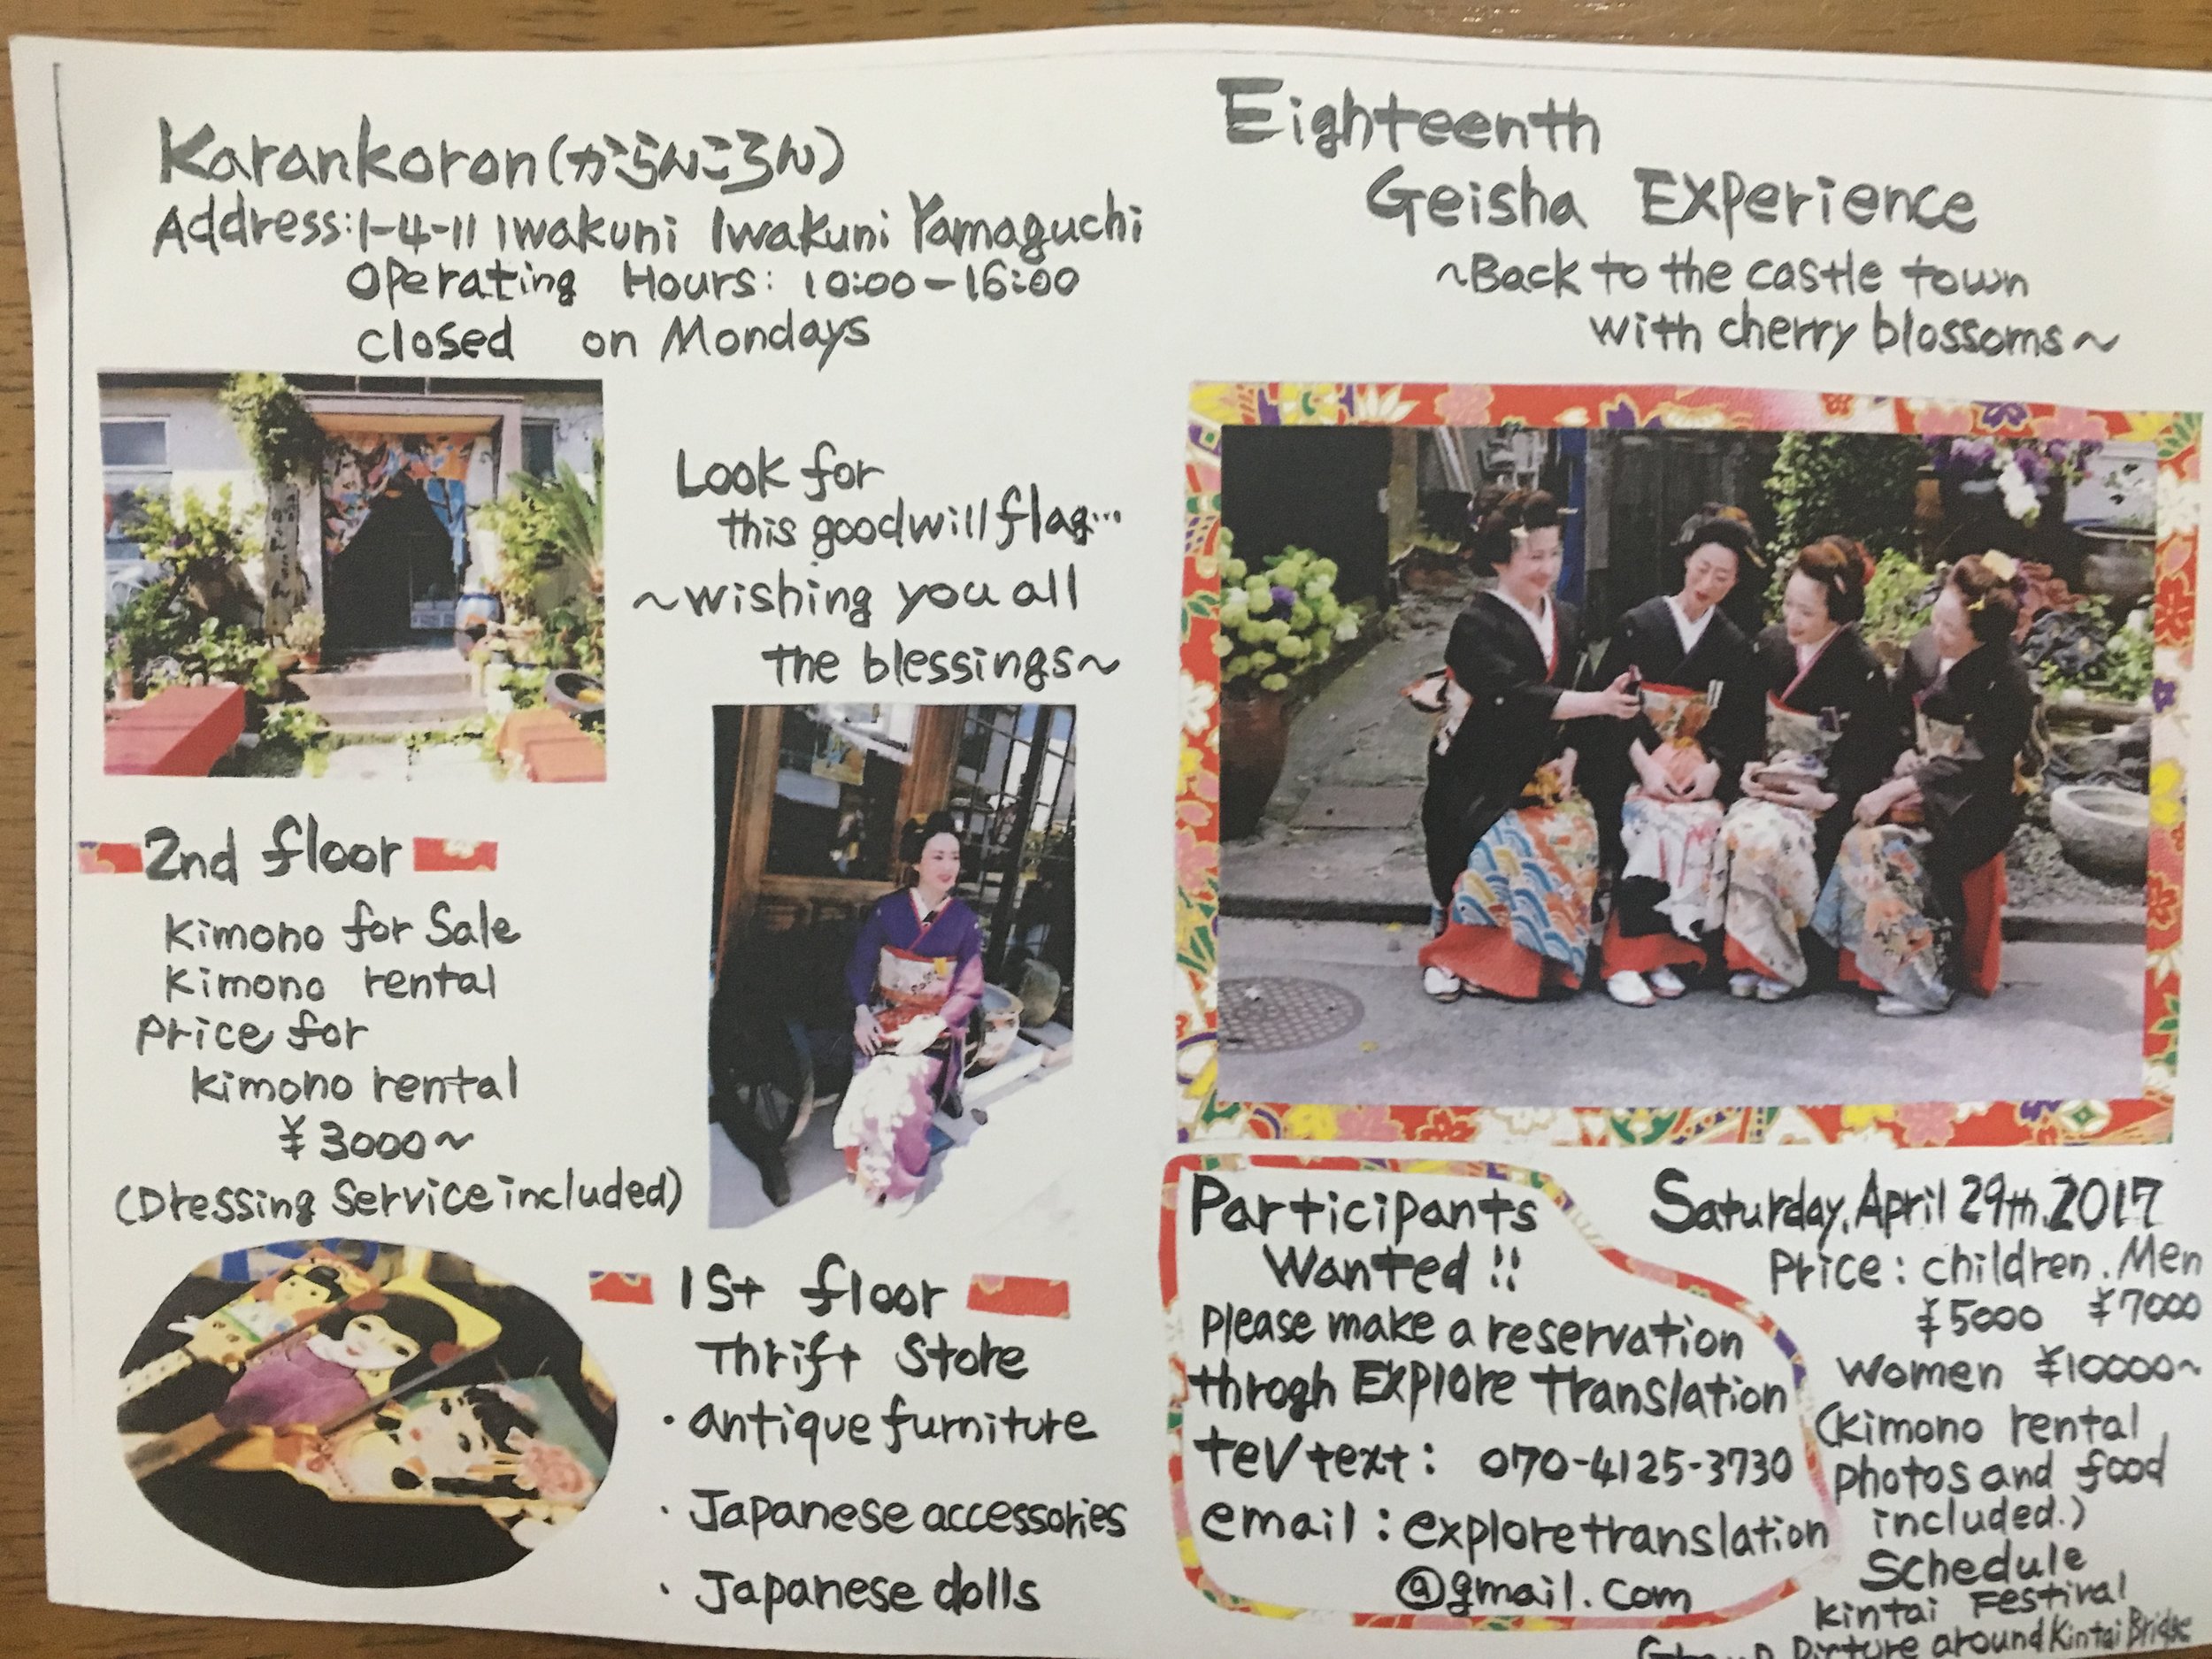 Karankoron(からんころん)
Address:1-4-11 Iwakuni Iwakuni Yamaguchi
Operating Hours: 10:00-16:00
closed on Mondays
Look for
this goodwill flag...
~wishing you all
the blessings~
2nd floor
Kimono for Sale
Kimono rental
Price for
kimono rental
¥3000~
(Dressing Service included)
1st floor
Thrift Store
・antique furniture
・Japanese accessories
・Japanese dolls
Eighteenth
Geisha Experience
~Back to the castle town
with cherry blossoms~
Participants
Wanted!!
please make a reservation
throgh Explore Translation
tel/text: 070-4125-3730
email: exploretranslation
@gmail.com
Saturday, April 29th, 2017
Price: children. Men
¥5000 ¥7000
Women ¥10000~
(kimono rental,
photos and food
included.)
Schedule
Kintai Festival
Group Picture around Kintai Bridge